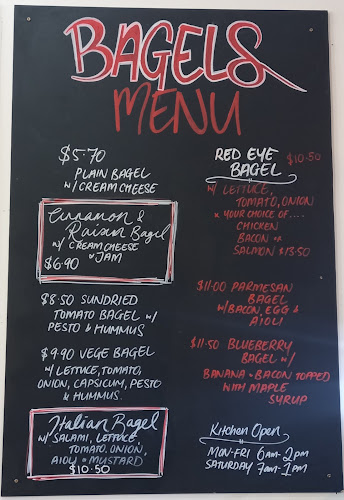 BAGELS
MENU
$5.70
PLAIN BAGEL
W/ CREAM CHEESE
Cinnamon &
Raisin Bagel
W/ CREAM CHEESE
& JAM
$6.90
$8.50 SUNDRIED
TOMATO BAGEL W/
PESTO & HUMMUS
$9.90 VEGE BAGEL
W/ LETTUCE, TOMATO,
ONION, CAPSICUM, PESTO
& HUMMUS.
Italian Bagel
W/ SALAMI, LETTUCE,
TOMATO, ONION,
AIOLI & MUSTARD
$10.50
RED EYE $10.50
BAGEL
W/ LETTUCE,
TOMATO, ONION
& YOUR CHOICE OF....
CHICKEN
BACON or
SALMON $13.50
$11.00 PARMESAN
BAGEL
W/ BACON, EGG &
AIOLI
$11.50 BLUEBERRY
BAGEL W/
BANANA & BACON TOPPED
WITH MAPLE
SYRUP
KITCHEN OPEN
MON-FRI 6am-2pm
SATURDAY 7am-1pm